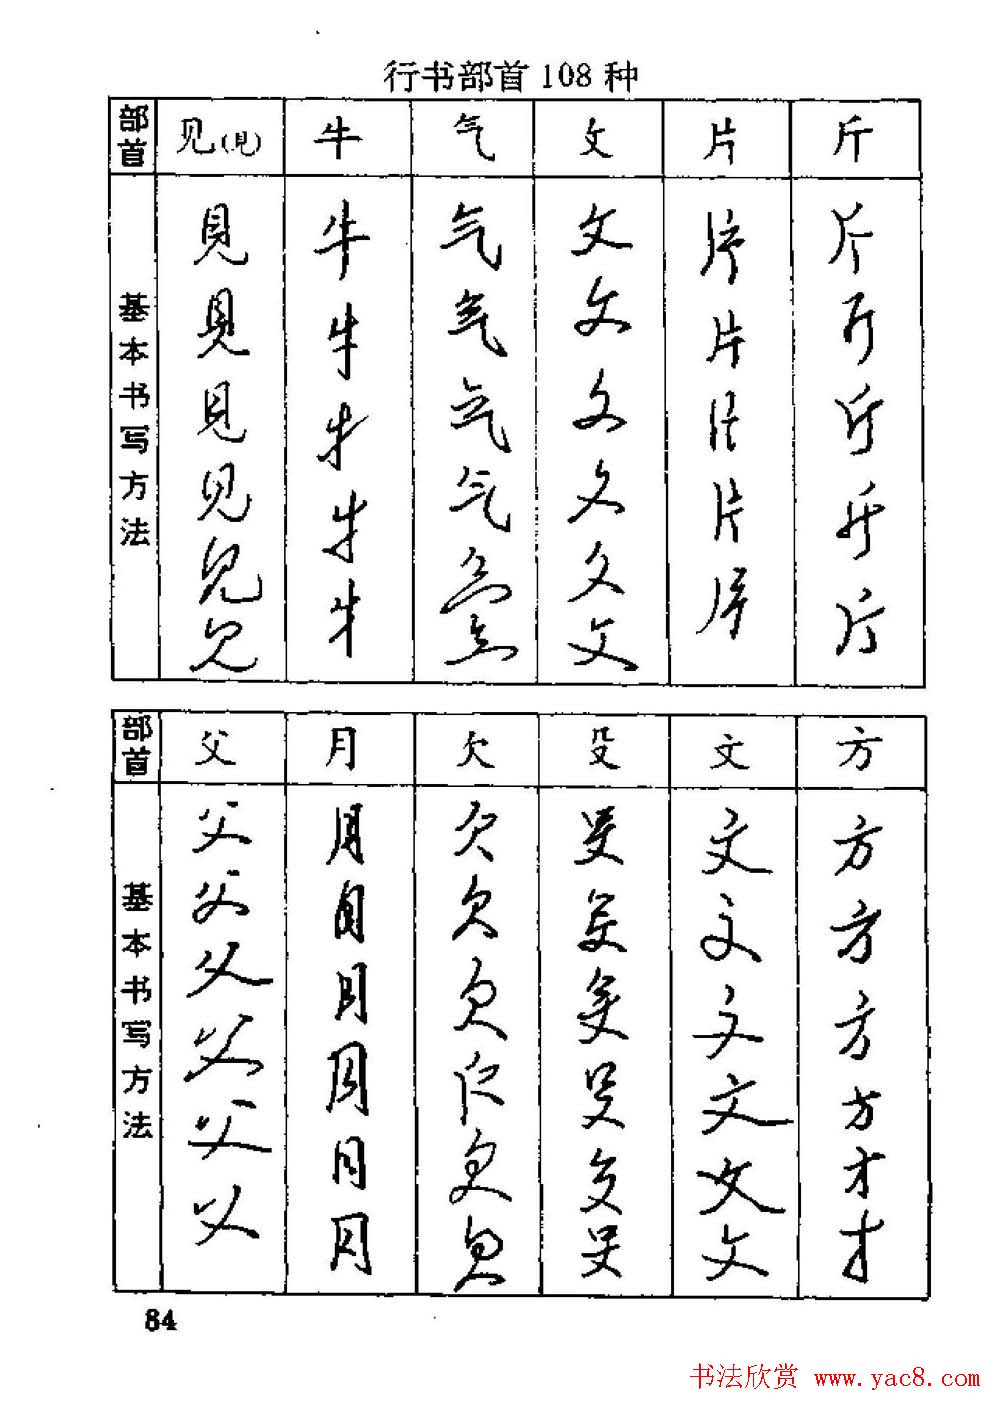 行书部首108种
部首 见(見) 牛 气 攵 片 斤
基本书写方法
見 見 見 见 见 见
牛 牛 牛 牛 牛
气 气 气 气 气 气
攵 攵 攵 攵 攵 攵
片 片 片 片 片
斤 斤 斤 斤 斤
部首 父 月 欠 殳 文 方
基本书写方法
父 父 父 父 父 父
月 月 月 月 月 月
欠 欠 欠 欠 欠 欠
殳 殳 殳 殳 殳 殳
文 文 文 文 文 文
方 方 方 方 方 方
84
书法欣赏 www.yac8.com